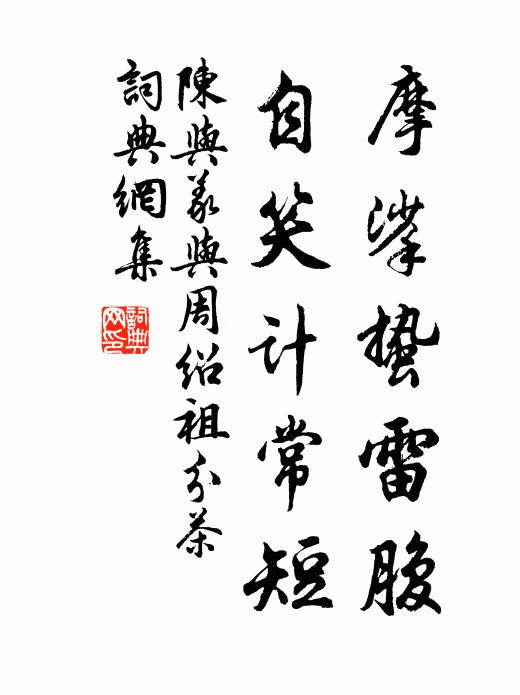 摩挲蛰雷腹
自笑计常短
陳與義與周紹祖分茶
詞典網集
詞典网印